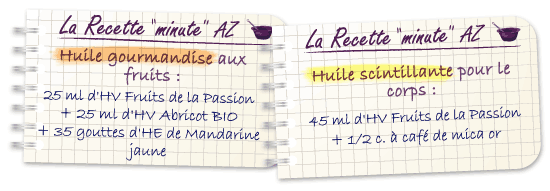 La Recette "minute" AZ
Huile gourmandise aux
fruits :
25 ml d'HV Fruits de la Passion
+ 25 ml d'HV Abricot BIO
+ 35 gouttes d'HE de Mandarine
jaune
La Recette "minute" AZ
Huile scintillante pour le
corps :
45 ml d'HV Fruits de la Passion
+ 1/2 c. à café de mica or